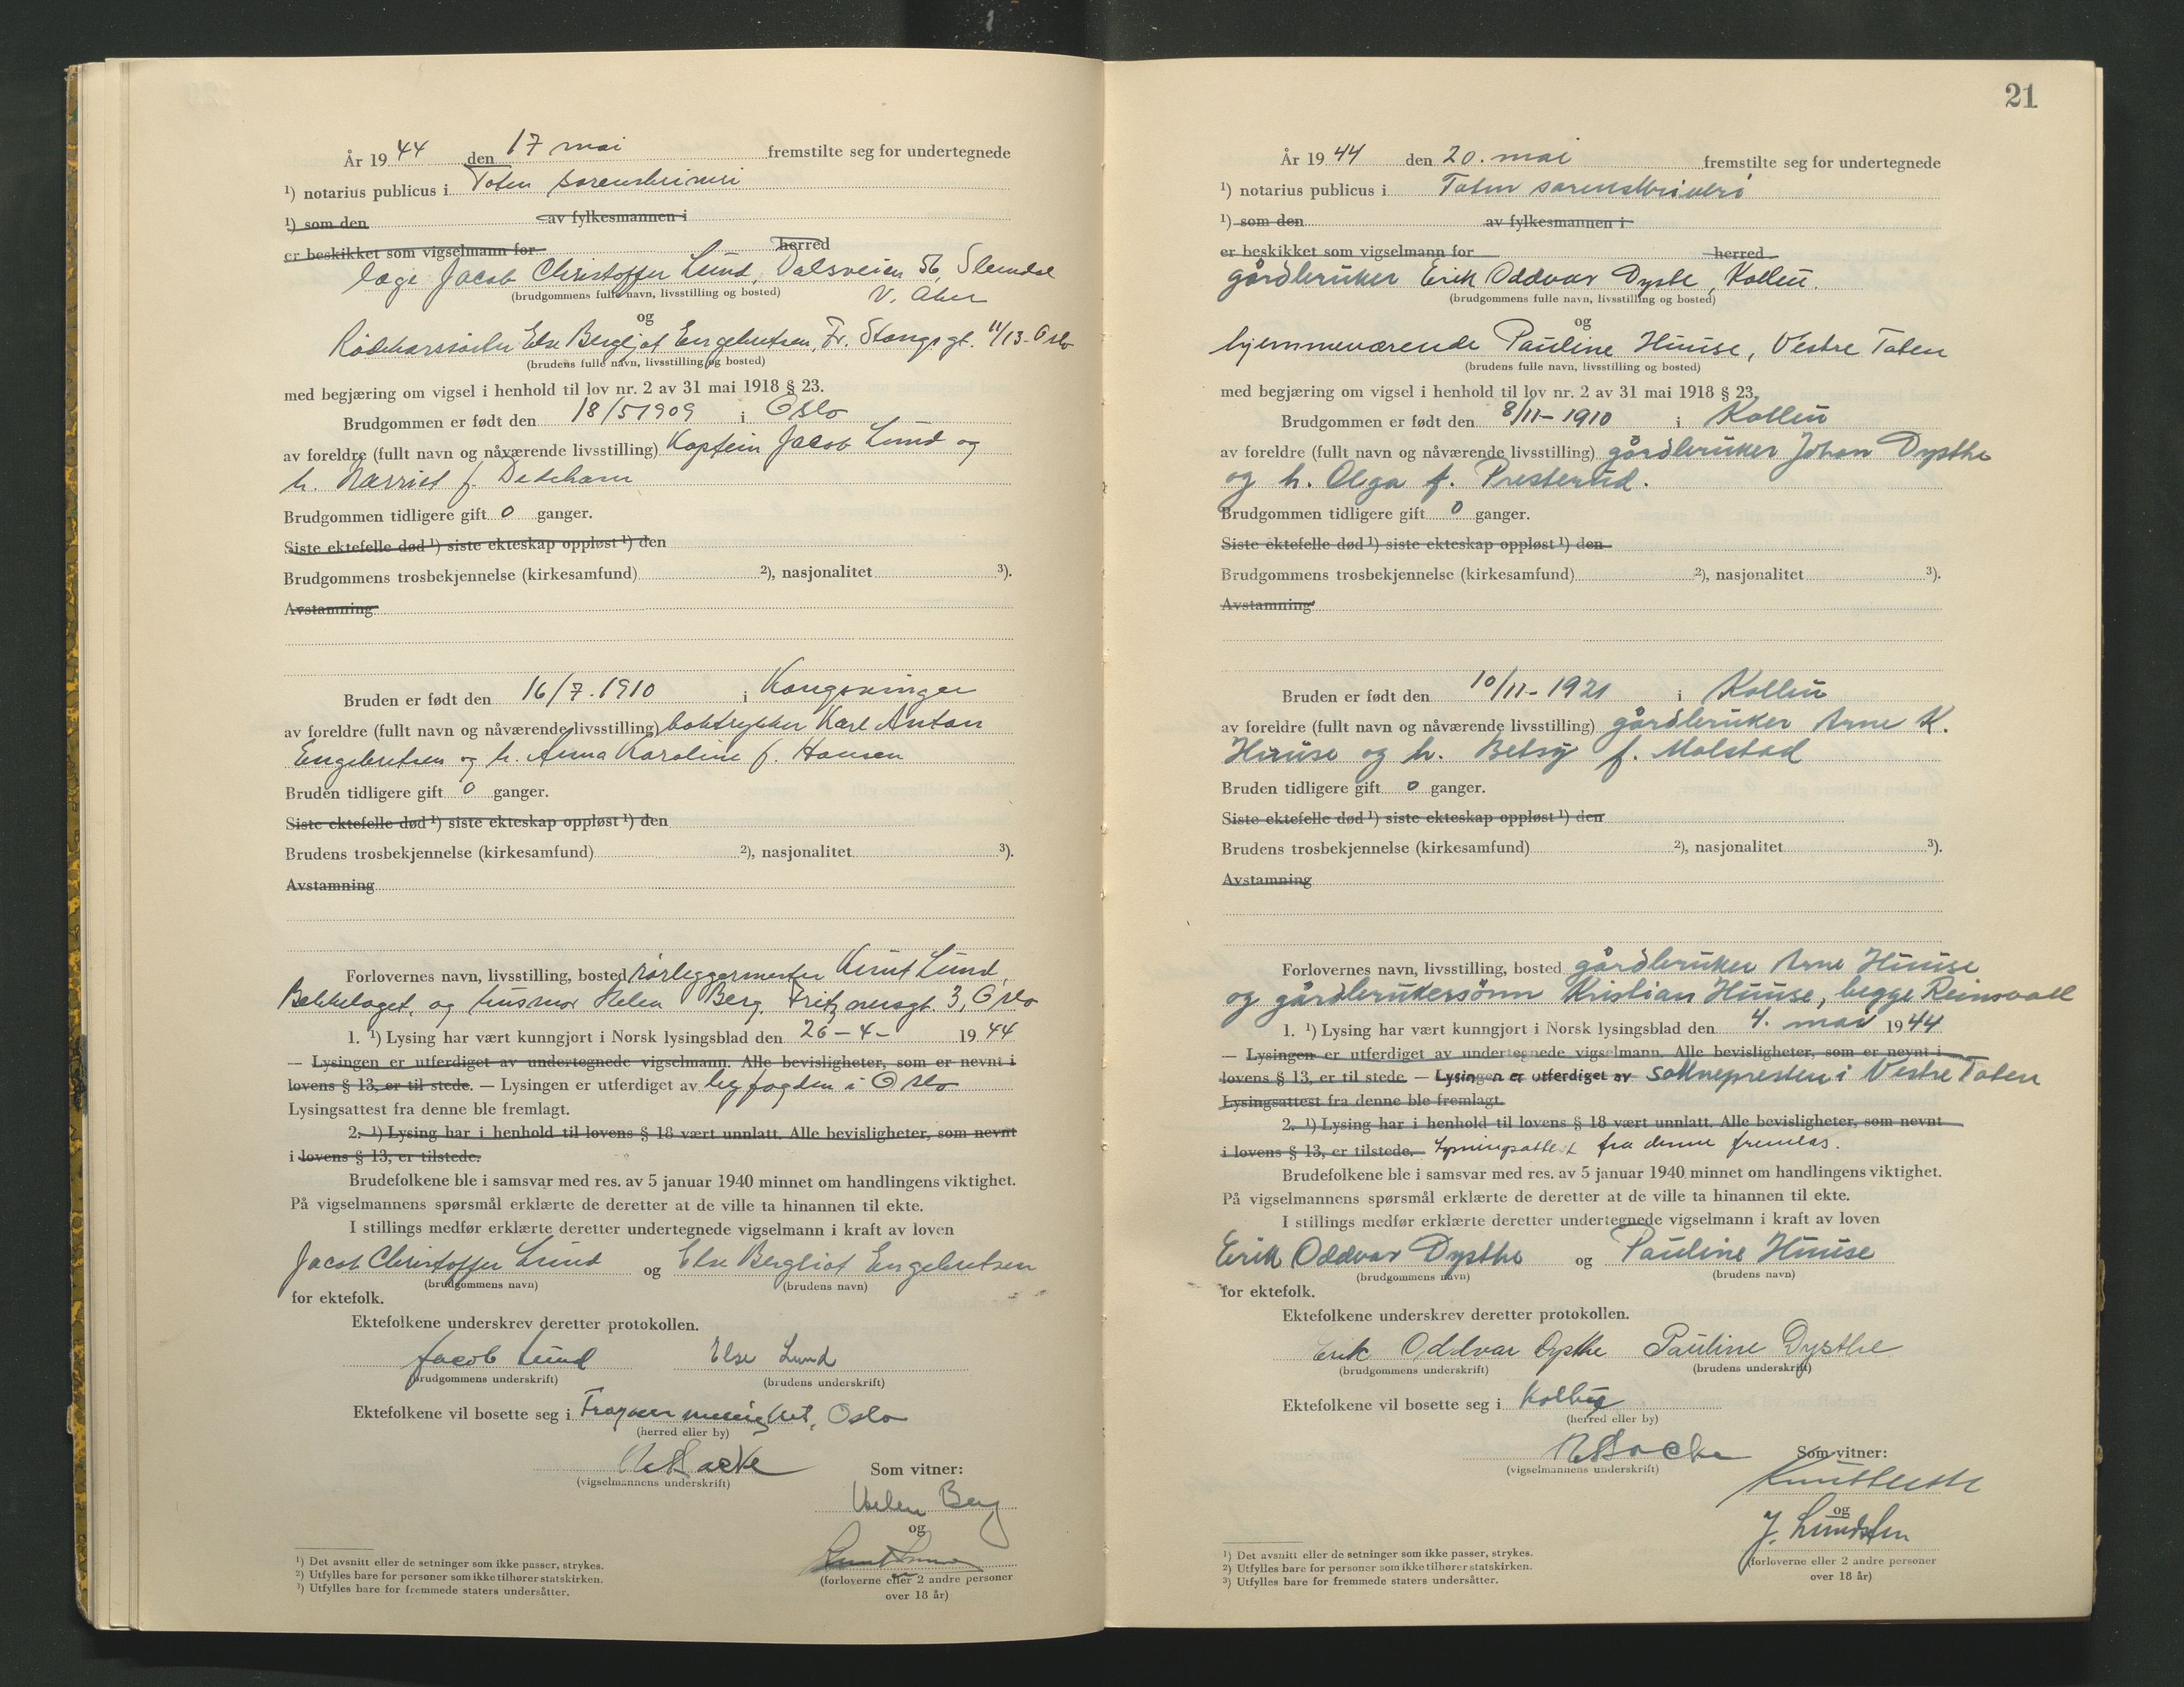 År 19 44 den 17 mai fremstilte seg for undertegnede
¹) notarius publicus i Toten sorenskriveri
¹) som den av fylkesmannen i
er beskikket som vigselmann for herred
læge Jacob Christoffer Lund, Dalsveien 56, Slemdal
V. Aker
(brudgommens fulle navn, livsstilling og bosted)
og
Else Bergljot Engebretsen, Fr. Stangsgt. 11/13 - Oslo
(brudens fulle navn, livsstilling og bosted)
med begjæring om vigsel i henhold til lov nr. 2 av 31 mai 1918 § 23.
Brudgommen er født den 18/5 1909 i Oslo
av foreldre (fullt navn og nåværende livsstilling) Kaptein Jacob Lund og
h. Harriet f. Dedekam
Brudgommen tidligere gift 0 ganger.
Siste ektefelle død ¹) siste ekteskap oppløst ¹) den
Brudgommens trosbekjennelse (kirkesamfund) ²), nasjonalitet ³).
Avstamning
Bruden er født den 16/7. 1910 i Kongsvinger
av foreldre (fullt navn og nåværende livsstilling) boktrykker Karl Anton
Engebretsen og h. Anna Karoline f. Hansen
Bruden tidligere gift 0 ganger.
Siste ektefelle død ¹) siste ekteskap oppløst ¹) den
Brudens trosbekjennelse (kirkesamfund) ²), nasjonalitet ³).
Avstamning
Forlovernes navn, livsstilling, bosted rørleggermester Knut Lund,
Bekkelaget, og husmor Helen Berg, Fritznersgt. 3, Oslo
1. ¹) Lysing har vært kunngjort i Norsk lysingsblad den 26 - 4 - 19 44
— Lysingen er utferdiget av undertegnede vigselmann. Alle bevisligheter, som er nevnt i
lovens § 13, er til stede. — Lysingen er utferdiget av byfogden i Oslo
Lysingsattest fra denne ble fremlagt.
2. ¹) Lysing har i henhold til lovens § 18 vært unnlatt. Alle bevisligheter, som nevnt
i lovens § 13, er tilstede.
Brudefolkene ble i samsvar med res. av 5 januar 1940 minnet om handlingens viktighet.
På vigselmannens spørsmål erklærte de deretter at de ville ta hinannen til ekte.
I stillings medfør erklærte deretter undertegnede vigselmann i kraft av loven
Jacob Christoffer Lund og Else Bergliot Engebretsen
(brudgommens navn) (brudens navn)
for ektefolk.
Ektefolkene underskrev deretter protokollen.
Jacob Lund Else Lund
(brudgommens underskrift) (brudens underskrift)
Ektefolkene vil bosette seg i Frogner menighet, Oslo
(herred eller by)
(vigselmannens underskrift)
Som vitner:
Helen Berg
og
Knut Lund
(forloverne eller 2 andre personer
over 18 år)
¹) Det avsnitt eller de setninger som ikke passer, strykes.
²) Utfylles bare for personer som ikke tilhører statskirken.
³) Utfylles bare for fremmede staters undersåtter.
21
År 19 44 den 20. mai fremstilte seg for undertegnede
¹) notarius publicus i Toten sorenskriveri
¹) som den av fylkesmannen i
er beskikket som vigselmann for herred
gårdbruker Erik Oddvar Dyste, Kolbu.
(brudgommens fulle navn, livsstilling og bosted)
og
hjemmeværende Pauline Huuse, Vestre Toten
(brudens fulle navn, livsstilling og bosted)
med begjæring om vigsel i henhold til lov nr. 2 av 31 mai 1918 § 23.
Brudgommen er født den 8/11 - 1910 i Kolbu
av foreldre (fullt navn og nåværende livsstilling) gårdbruker Johan Dysthe
og h. Olga f. Presterud.
Brudgommen tidligere gift 0 ganger.
Siste ektefelle død ¹) siste ekteskap oppløst ¹) den
Brudgommens trosbekjennelse (kirkesamfund) ²), nasjonalitet ³).
Avstamning
Bruden er født den 10/11 - 1921 i Kolbu
av foreldre (fullt navn og nåværende livsstilling) gårdbruker Arne K.
Huuse og h. Betsy f. Molstad
Bruden tidligere gift 0 ganger.
Siste ektefelle død ¹) siste ekteskap oppløst ¹) den
Brudens trosbekjennelse (kirkesamfund) ²), nasjonalitet ³).
Avstamning
Forlovernes navn, livsstilling, bosted gårdbruker Arne Huuse
og gårdbrukersønn Kristian Huuse, begge Reinsvoll
1. ¹) Lysing har vært kunngjort i Norsk lysingsblad den 4. mai 19 44
— Lysingen er utferdiget av undertegnede vigselmann. Alle bevisligheter, som er nevnt i
lovens § 13, er til stede — Lysingen er utferdiget av soknepresten i Vestre Toten
Lysingsattest fra denne ble fremlagt.
2. ¹) Lysing har i henhold til lovens § 18 vært unnlatt. Alle bevisligheter, som nevnt
i lovens § 13, er tilstede. Lysningsattest fra denne fremlas.
Brudefolkene ble i samsvar med res. av 5 januar 1940 minnet om handlingens viktighet.
På vigselmannens spørsmål erklærte de deretter at de ville ta hinannen til ekte.
I stillings medfør erklærte deretter undertegnede vigselmann i kraft av loven
Erik Oddvar Dysthe og Pauline Huuse
(brudgommens navn) (brudens navn)
for ektefolk.
Ektefolkene underskrev deretter protokollen.
Erik Oddvar Dysthe Pauline Dysthe
(brudgommens underskrift) (brudens underskrift)
Ektefolkene vil bosette seg i Kolbu
(herred eller by)
(vigselmannens underskrift)
Som vitner:
og
J. Lundsten
(forloverne eller 2 andre personer
over 18 år)
¹) Det avsnitt eller de setninger som ikke passer, strykes.
²) Utfylles bare for personer som ikke tilhører statskirken.
³) Utfylles bare for fremmede staters undersåtter.